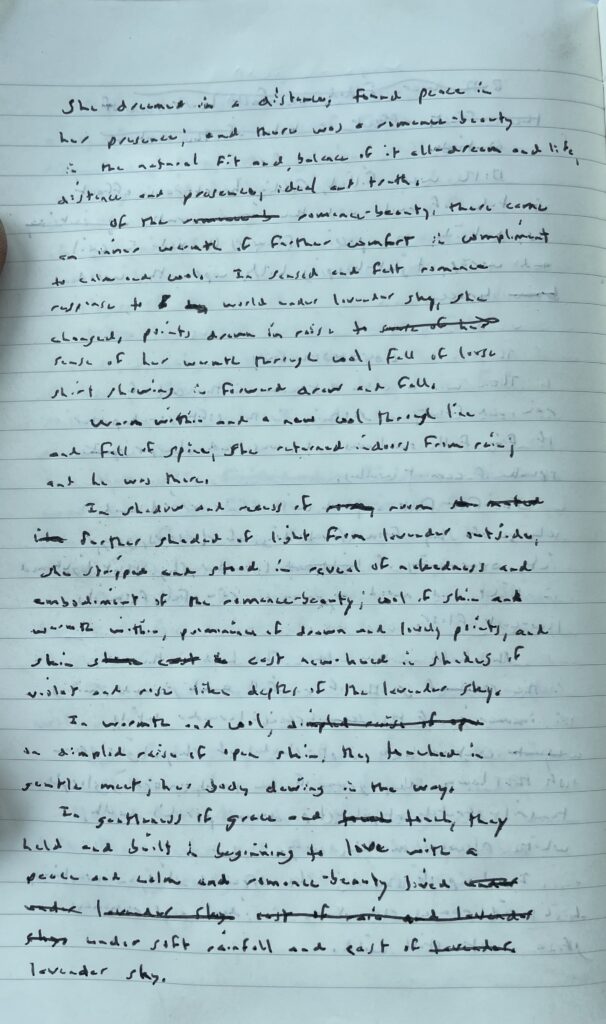 She dreamed in a distance, found peace in
her presence; and there was a romance-beauty
in the natural fit and balance of it all: dream and life,
distance and presence, ideal and truth.
Of the romance-beauty, there came
an inner warmth of further comfort in compliment
to calm and cool. In sensed and felt romance
response to world under lavender sky, she
changed, points drawn in raise to
sense of her warmth through cool, fall of loose
shirt showing in forward draw and fall.
Warm within and a new cool through line
and fall of spine, she returned indoors from rain,
and he was there.
In shadow and recess of room
further shaded of light from lavender outside,
she stripped and stood in reveal of nakedness and
embodiment of the romance-beauty; cool of skin and
warmth within, prominence of drawn and lovely points, and
skin cast new-hued in shades of
violet and rose like depths of the lavender sky.
In warmth and cool,
in dimpled raise of open skin, they touched in
gentle meet; her body dewing in the way.
In gentleness of grace and touch, they
held and built in beginning to love with a
peace and calm and romance-beauty lived
under soft rainfall and cast of
lavender sky.